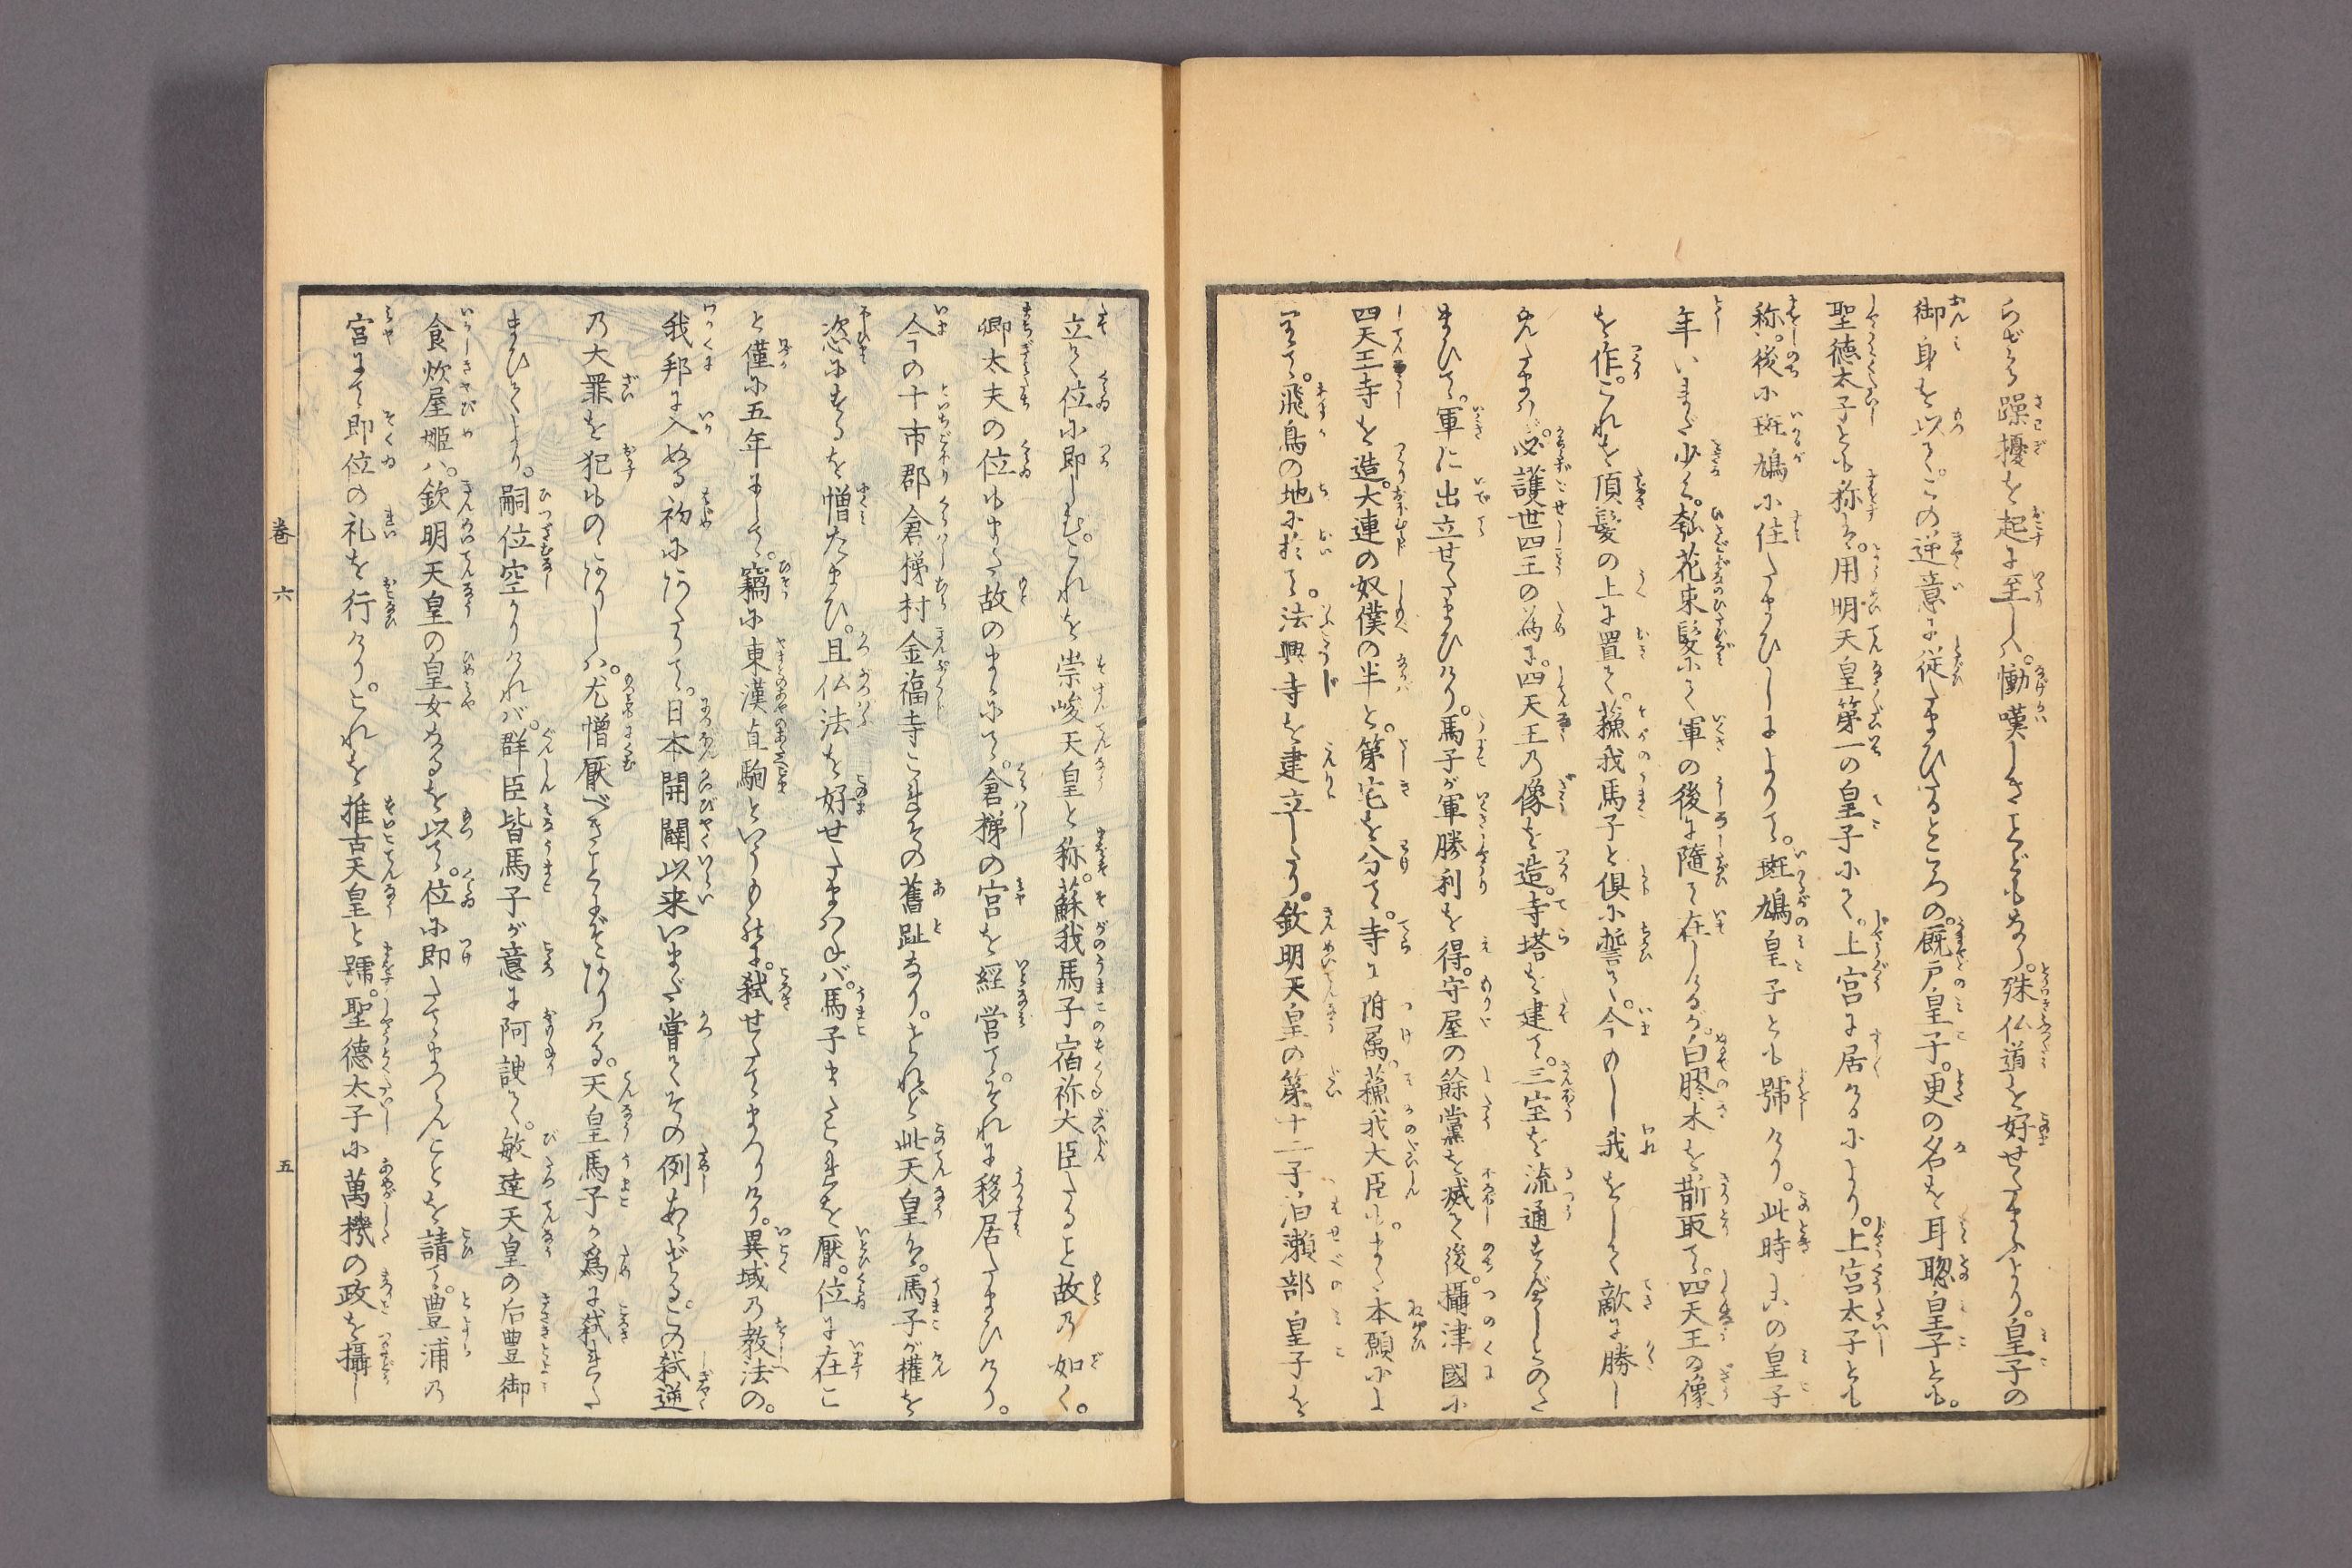 らざる躁擾を起に至しハ。慟嘆しきことどもなり。殊仏道を好せたまふより。皇子の
御身を以て。この逆意に従たまひたるところの。厩戸皇子。更の名を耳聰皇子とも。
聖徳太子とも称す。用明天皇第一の皇子にて。上宮に居けるにより。上宮太子とも
称。後に斑鳩に住たまひしによりて。斑鳩皇子とも號けり。此時この皇子
年いまだ少く。瓠花束髮にて軍の後に隨て在しけるが。白膠木を斮取て。四天王の像
を作。これを頂髮の上に置て。蘓我馬子と倶に誓て。今のし我をして敵に勝し
めたまハヾ。必護世四王の為に。四天王乃像を造。寺塔を建て。三宝を流通すべしとのた
まひて。軍に出立せたまひけり。馬子が軍勝利を得。守屋の餘黨を滅て後。攝津國に
四天王寺を造。大連の奴僕の半と。第宅を分て。寺に附属。蘓我大臣も。また本願によ
りて。飛鳥の地に於て。法興寺を建立したり。欽明天皇の第十二子泊瀬部皇子を
立て位に即しむ。これを崇峻天皇と称。蘇我馬子宿祢大臣たること故乃如く。
卿太夫の位もまた故のまゝにて。倉梯の宮を経営て。それに移居たまひけり。
今の十市郡倉梯村金福寺これその舊趾なり。されど此天皇ハ。馬子が權を
恣にするを憎たまひ。且仏法を好せたまハねバ。馬子またこれを厭。位に在こ
と僅に五年にして。竊に東漢直駒というものに。弑せたてまつりけり。異域乃教法の。
我邦に入ぬる初にあたりて。日本開闢以来いまだ嘗てその例あらざる。この弑逆
乃大罪を犯ものありしハ。尤憎厭べきことにぞありける。天皇馬子が爲に弑された
まひてより。嗣位空かりけれバ。群臣皆馬子が意に阿諛て。敏達天皇の后豊御
食炊屋姫ハ。欽明天皇の皇女なるを以て。位に即たてまつらんことを請て。豊浦乃
宮にて即位の礼を行けり。これを推古天皇と號。聖徳太子に萬機の政を攝し
巻六
五